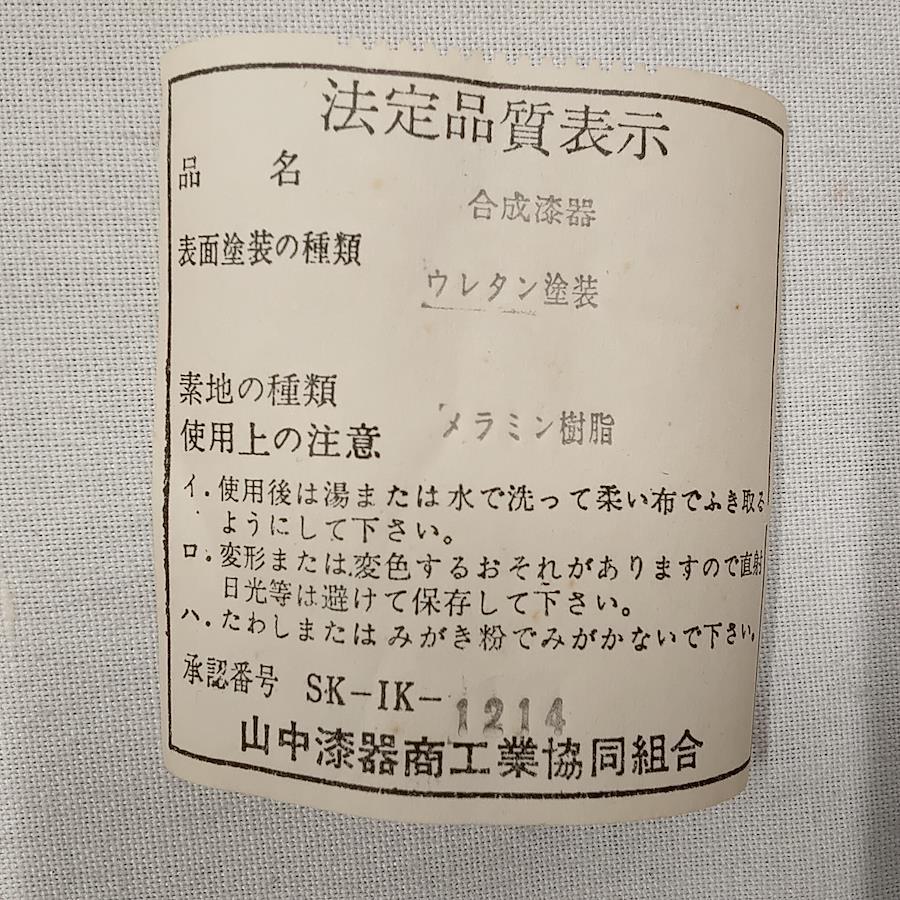 法定品質表示
品　名
合成漆器
表面塗装の種類
ウレタン塗装
素地の種類
メラミン樹脂
使用上の注意
イ.使用後は湯または水で洗って柔い布でふき取る
ようにして下さい。
ロ.変形または変色するおそれがありますので直射
日光等は避けて保存して下さい。
ハ.たわしまたはみがき粉でみがかないで下さい。
承認番号 SK-IK-1214
山中漆器商工業協同組合